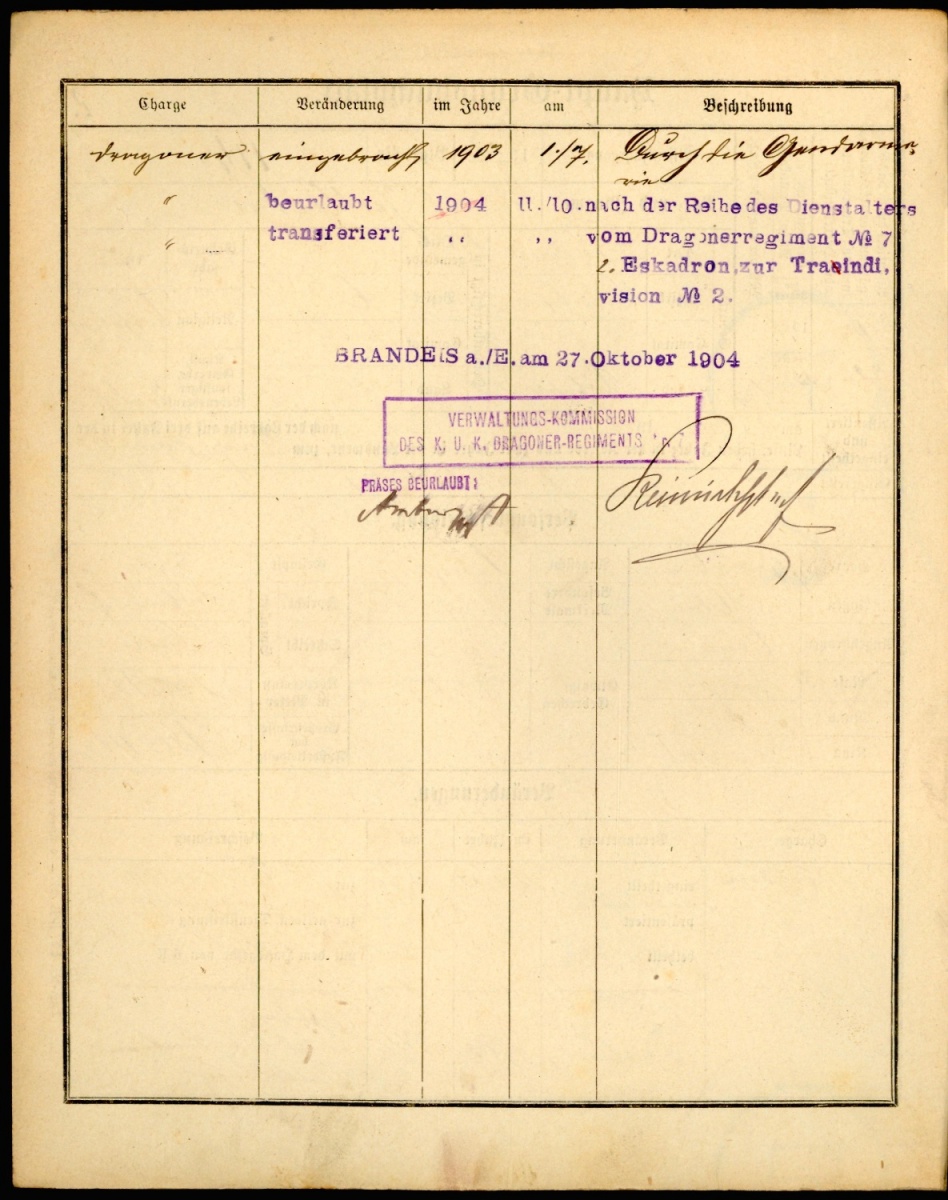 Charge Veränderung im Jahre am Beschreibung
Dragoner eingebracht 1903 1./7. Durch die Gendarme-
rie
" beurlaubt 1904 11./10. nach der Reihe des Dienstalters
" transferiert ,, ,, vom Dragonerregiment № 7
2. Eskadron, zur Traindi,
vision № 2.
BRANDEIS a./E. am 27. Oktober 1904
VERWALTUNGS-KOMMISSION
DES K. U. K. DRAGONER-REGIMENTS No 7
PRÄSES BEURLAUBT: